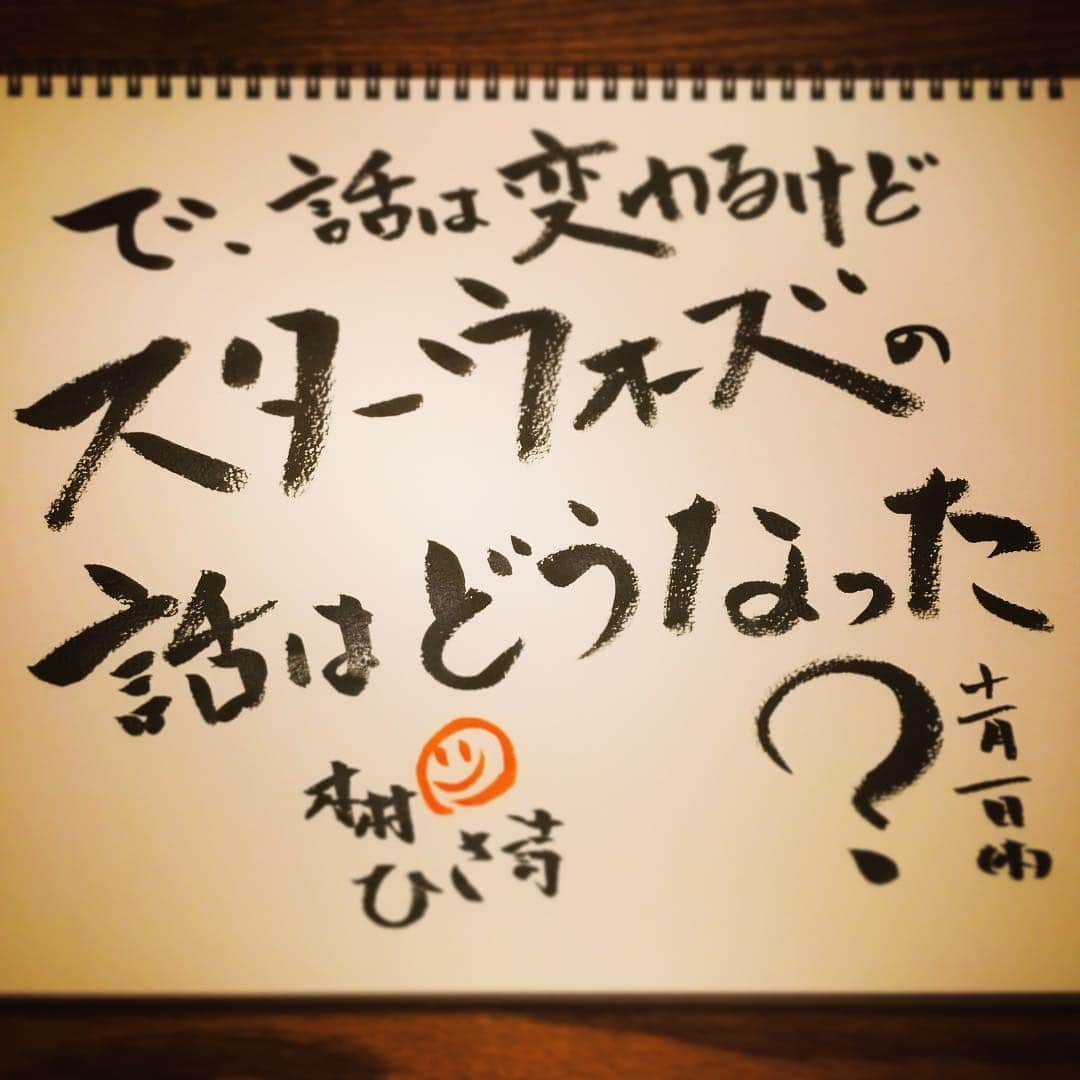 で、話は変わるけど
スターウォーズの
話はどうなった
？
十一月一日雨
木村
ひさ